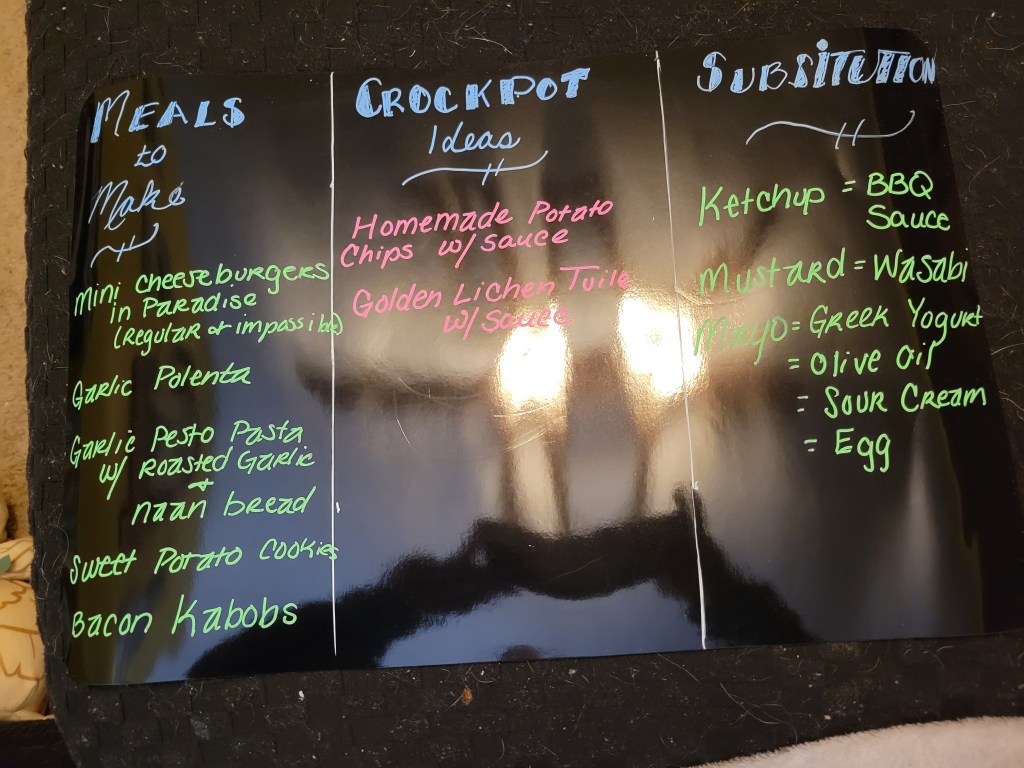 MEALS
to
Make
Mini Cheeseburgers
in Paradise
(Regular or impassible)
Garlic Polenta
Garlic Pesto Pasta
w/ Roasted Garlic
+
naan bread
Sweet Potato Cookies
Bacon Kabobs
CROCKPOT
Ideas
Homemade Potato
Chips w/ sauce
Golden Lichen Tuile
w/ sauce
SUBSITUTION
Ketchup = BBQ
Sauce
Mustard = Wasabi
Mayo = Greek Yogurt
= Olive Oil
= Sour Cream
= Egg